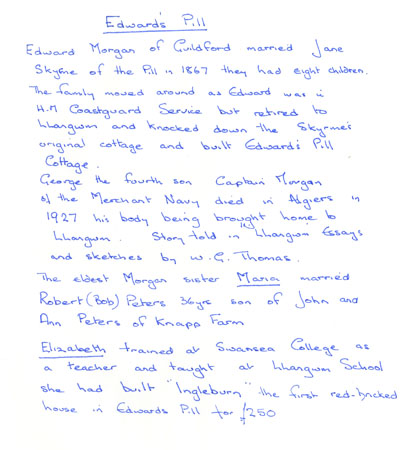 Edward's Pill
Edward Morgan of Guildford married Jane
Skyrme of the Pill in 1867 they had eight children.
The family moved around as Edward was in
H.M Coastguard Service but retired to
Llangwm and knocked down the Skyrme's
original cottage and built Edward's Pill
Cottage.
George the fourth son Captain Morgan
of the Merchant Navy died in Algiers in
1927 his body being brought home to
Llangwm. Story told in "Llangwm Essays
and sketches by W.G. Thomas.
The eldest Morgan sister Maria married
Robert (Bob) Peters 36yrs son of John and
Ann Peters of Knapp Farm
Elizabeth trained at Swansea College as
a teacher and taught at Llangwm School
she had built "Ingleburn" the first red-bricked
house in Edwards Pill for £250